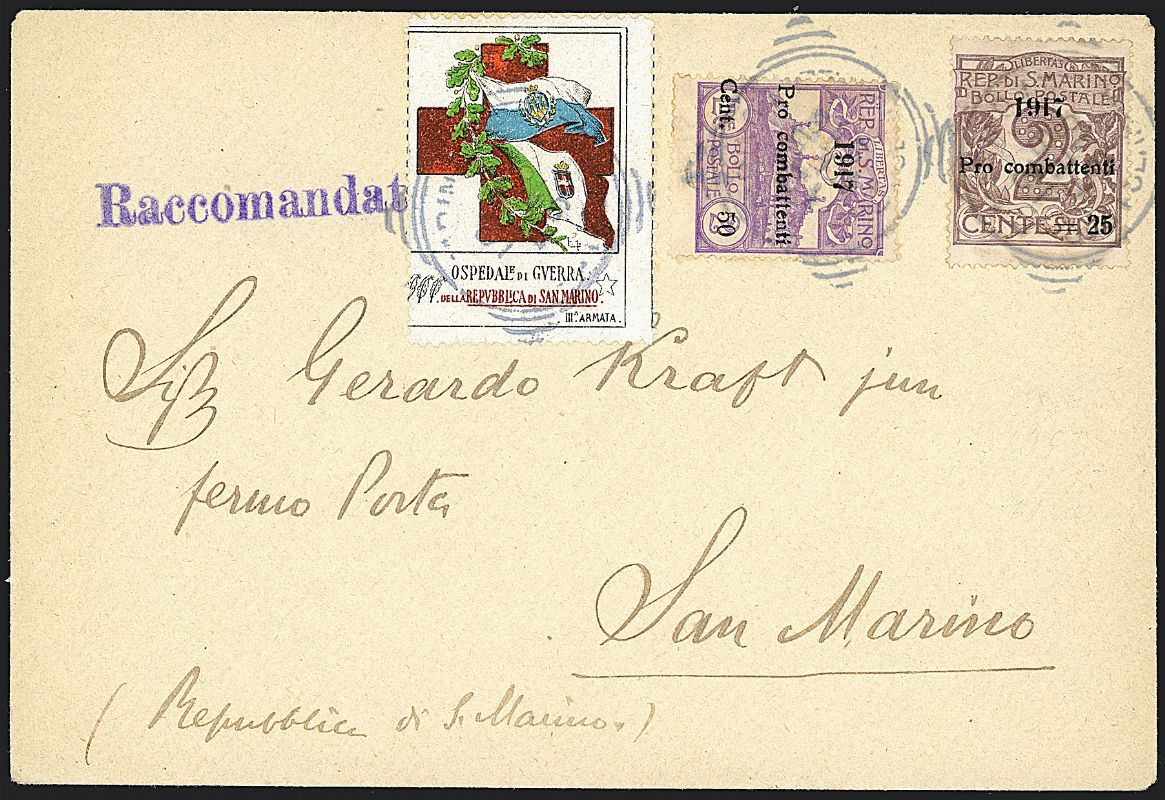 Raccomandat
OSPEDALE DI GVERRA.
DELLA REPVBBLICA DI SAN MARINO.
IIIª ARMATA.
LIBERTAS
REP. DI S. MARINO
BOLLO POSTALE
1917
Pro combattenti
Cent. 50
LIBERTAS
REP. DI S. MARINO
BOLLO POSTALE
1917
2
Pro combattenti
CENTESIMI 25
Sig Gerardo Kraft jun
fermo Posta
San Marino
(Repubblica di S. Marino.)